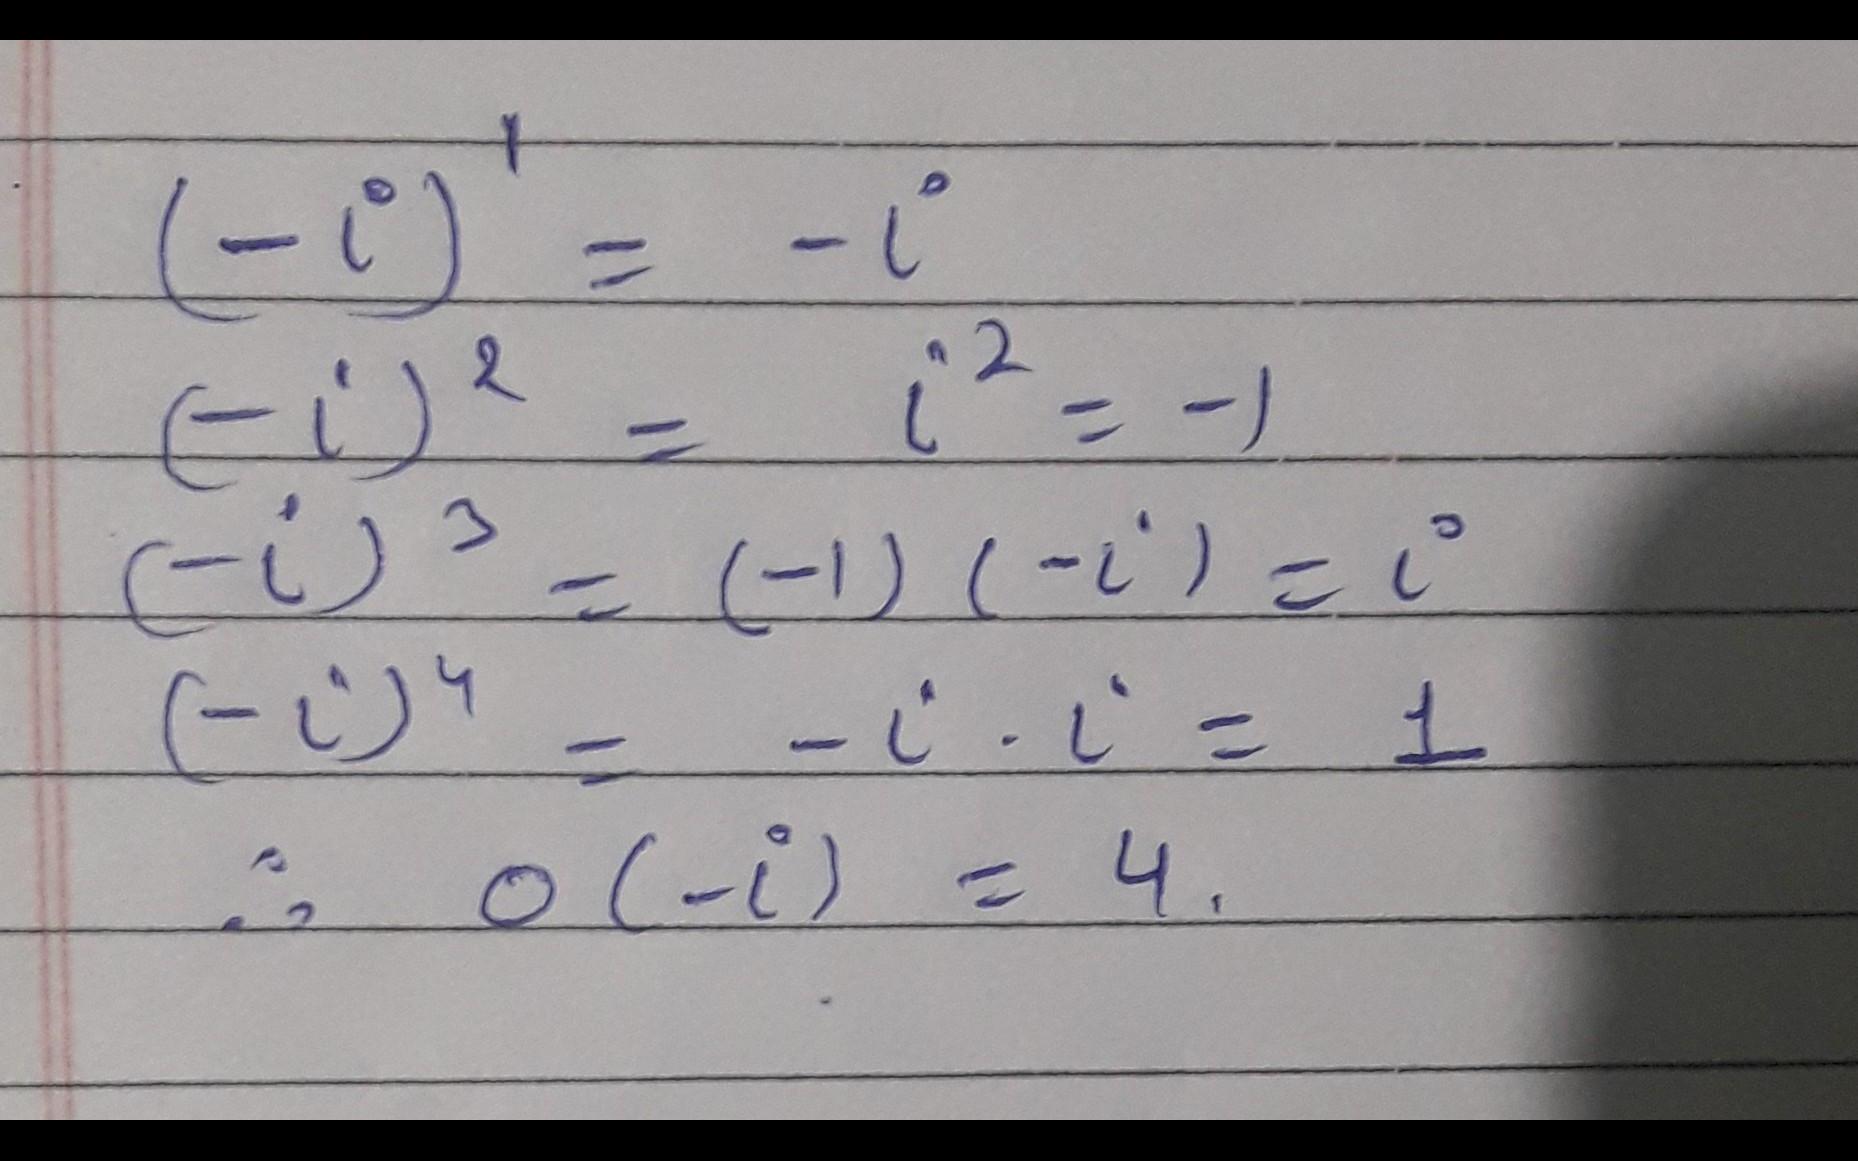 (-i)¹ = -i
(-i)² = i² = -1
(-i)³ = (-1) (-i) = i
(-i)⁴ = -i · i = 1
∴ o(-i) = 4.